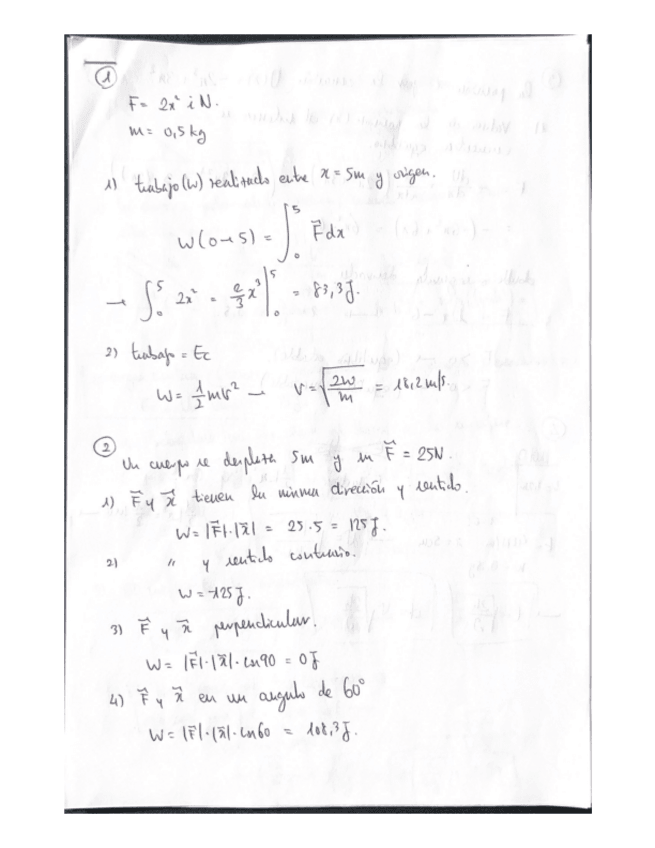 1
F = 2x² i N.
m = 0,5 kg
1) trabajo (W) realizado entre x = 5m y origen.
W(0→5) = ∫₀⁵ F⃗dx
→ ∫₀⁵ 2x² = 2/3 x³ |₀⁵ = 83,3J.
2) trabajo = Ec
W = 1/2 mv² → v = √(2W/m) = 18,2 m/s.
2
Un cuerpo se desplaza 5m y su F⃗ = 25N.
1) F⃗ y x⃗ tienen la misma dirección y sentido.
W = |F⃗|·|x⃗| = 25·5 = 125J.
2) " y sentido contrario.
W = -125J.
3) F⃗ y x⃗ perpendicular.
W = |F⃗|·|x⃗|·cos90 = 0J
4) F⃗ y x⃗ en un angulo de 60°
W = |F⃗|·|x⃗|·cos60 = 108,3J.